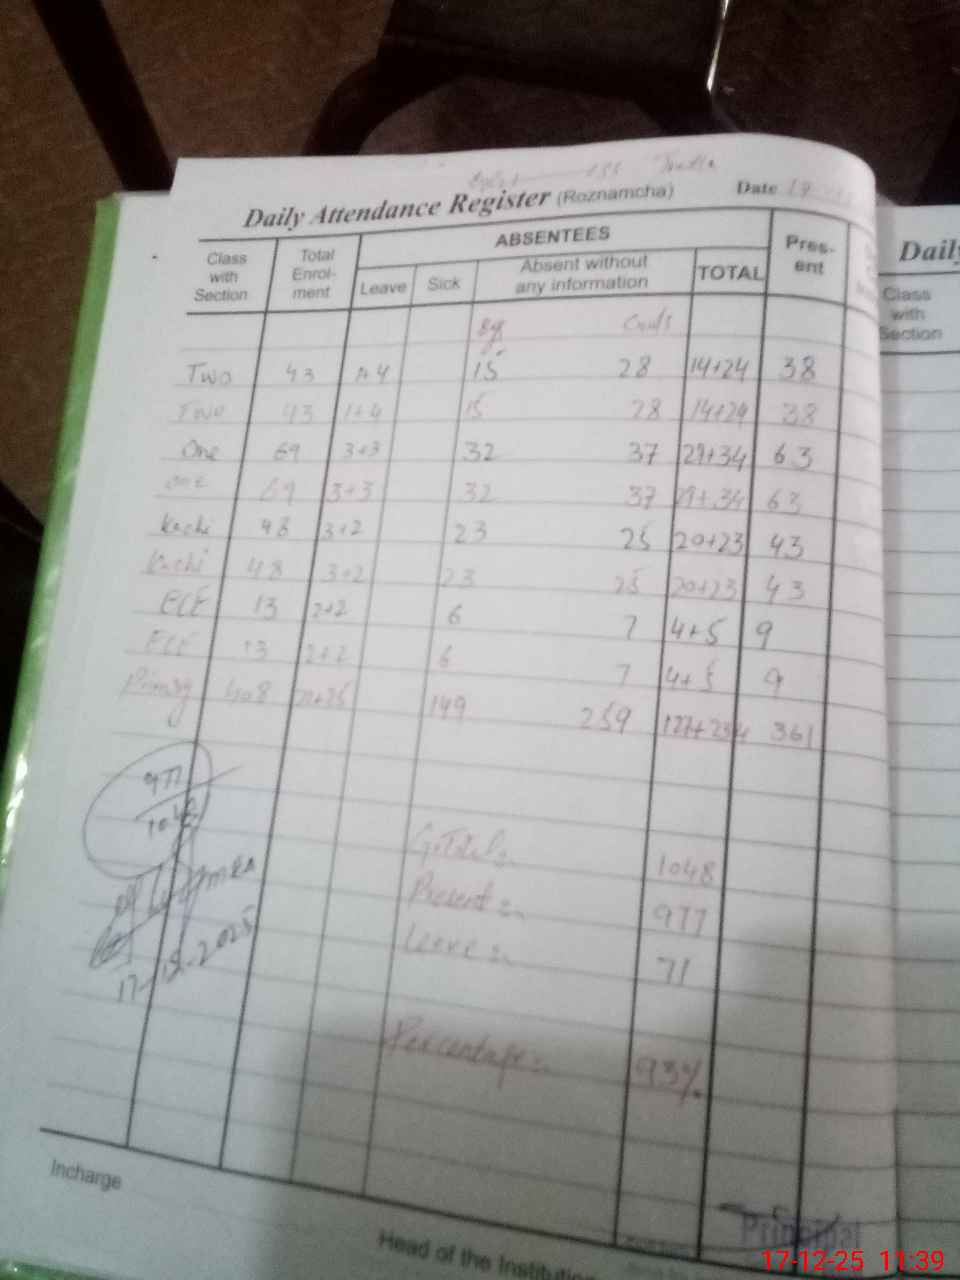 Daily Attendance Register (Roznamcha) Date
Class with Section
Total Enrol- ment
ABSENTEES
Leave
Sick
Absent without any information
TOTAL
Pres- ent
Two 43 1+4 15 28 14+24 38
Two 43 1+4 15 28 14+24 38
One 69 3+3 32 37 29+34 63
One 69 3+3 32 37 29+34 63
Kachi 48 3+2 23 25 20+23 43
Kachi 48 3+2 23 25 20+23 43
ECE 13 2+2 6 7 4+5 9
ECE 13 2+2 6 7 4+5 9
Primary 408 149 259 127+234 361
977
1048
G.Total 1048
Present 977
Leave 71
17-12-2025
Percentage 93%
Incharge
Head of the Institution
Principal
Daily
Class
with
Section
17-12-25 11:39